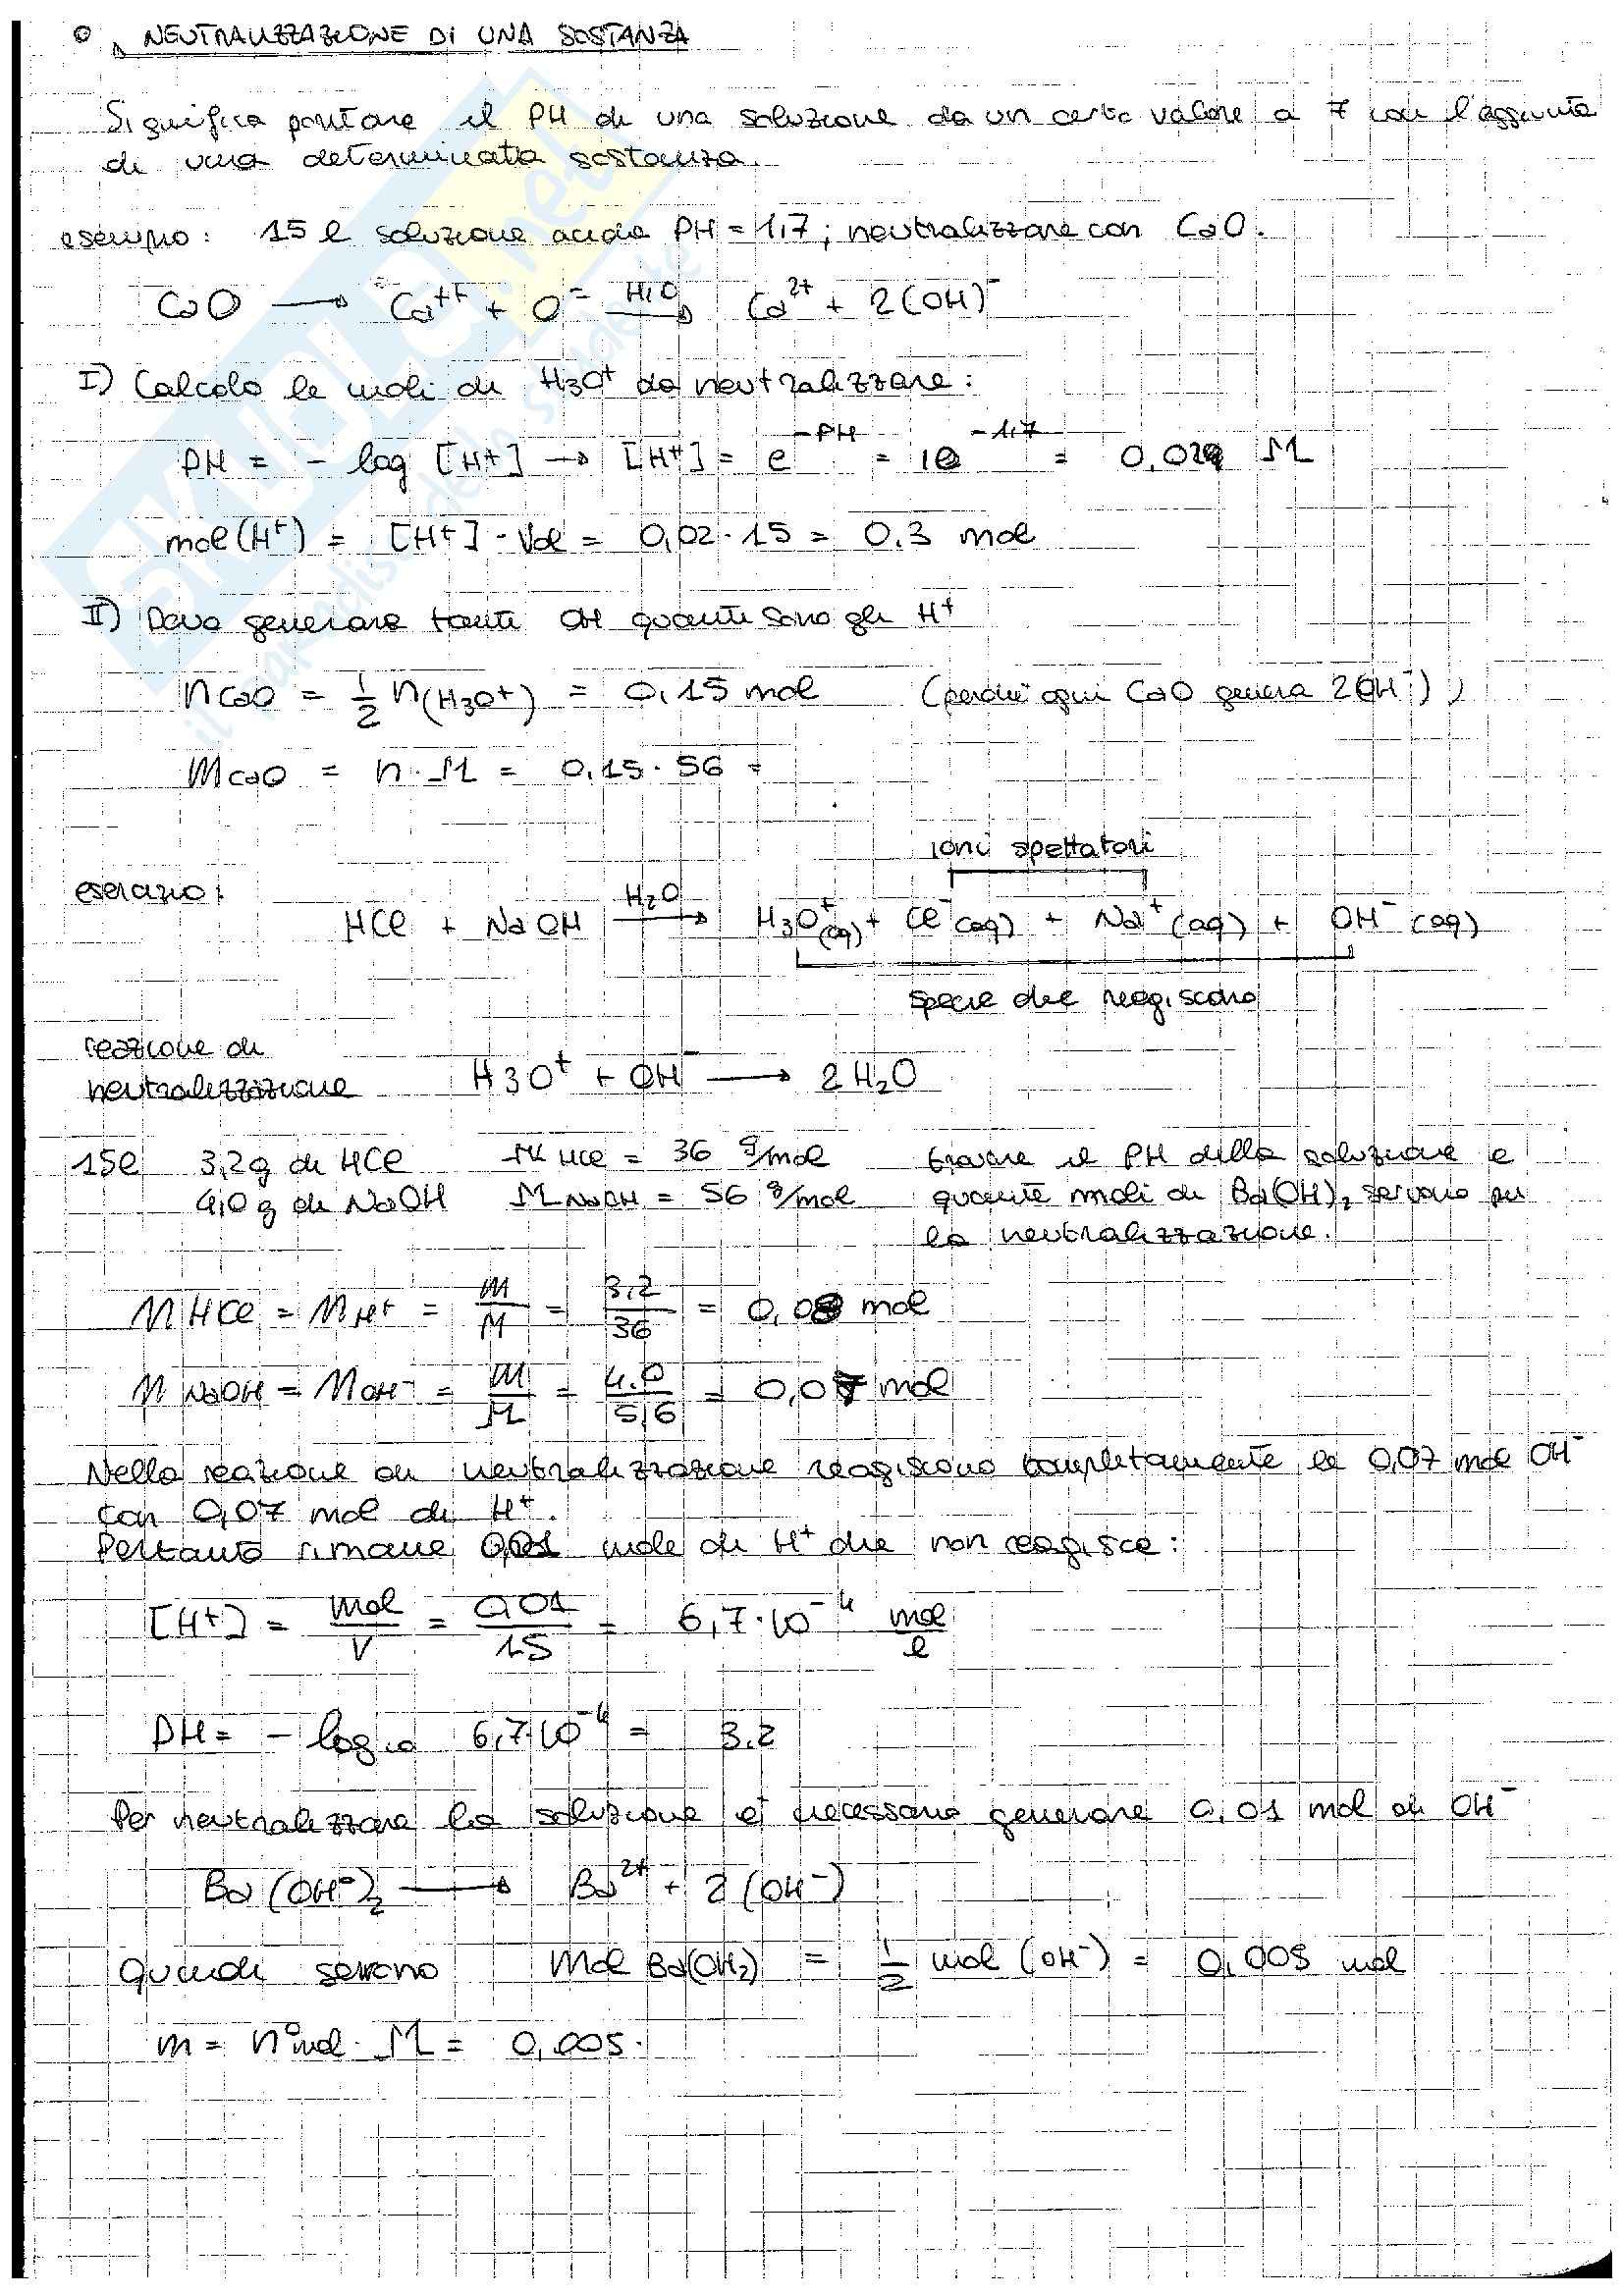 NEUTRALIZZAZIONE DI UNA SOSTANZA
Significa portare il PH di una soluzione da un certo valore a 7 con l'aggiunta
di una determinata sostanza.
esempio: 15 l soluzione acida PH = 1,7; neutralizzare con CaO.
CaO → Ca⁺⁺ + O⁼ H₂O → Ca²⁺ + 2(OH)⁻
I) Calcolo le moli di H₃O⁺ da neutralizzare:
PH = - log [H⁺] → [H⁺] = e^-PH = 10^-1,7 = 0,02 M
mol(H⁺) = [H⁺] · Vol = 0,02 · 15 = 0.3 mol
II) Devo generare tanti OH quanti sono gli H⁺
nCaO = 1/2 n(H₃O⁺) = 0,15 mol (perché ogni CaO genera 2(OH⁻))
mCaO = n · M = 0,15 · 56 =
ioni spettatori
esercizio:
HCl + NaOH H₂O → H₃O⁺(aq) + Cl⁻(aq) + Na⁺(aq) + OH⁻(aq)
specie che reagiscono
reazione di
neutralizzazione H3O⁺ + OH⁻ → 2H₂O
15l 3,2g di HCl M HCl = 36 g/mol trovare il PH della soluzione e
4,0 g di NaOH M NaOH = 56 g/mol quante moli di Ba(OH)₂ servono per
la neutralizzazione.
n HCl = n H⁺ = m/M = 3,2/36 = 0,08 mol
n NaOH = n OH⁻ = m/M = 4.0/56 = 0,07 mol
Nella reazione di neutralizzazione reagiscono completamente le 0,07 mol OH⁻
con 0,07 mol di H⁺.
Pertanto rimane 0,01 mole di H⁺ che non reagisce:
[H⁺] = mol/V = 0,01/15 = 6,7·10⁻⁴ mol/l
PH = - log₁₀ 6,7·10⁻⁴ = 3.2
Per neutralizzare la soluzione è necessario generare 0,01 mol di OH⁻
Ba(OH⁻)₂ → Ba²⁺ + 2(OH⁻)
Quindi servono mol Ba(OH₂) = 1/2 mol (OH⁻) = 0,005 mol
m = n°mol · M = 0,005 ·
SKUOLA.net
il paradiso dello studente